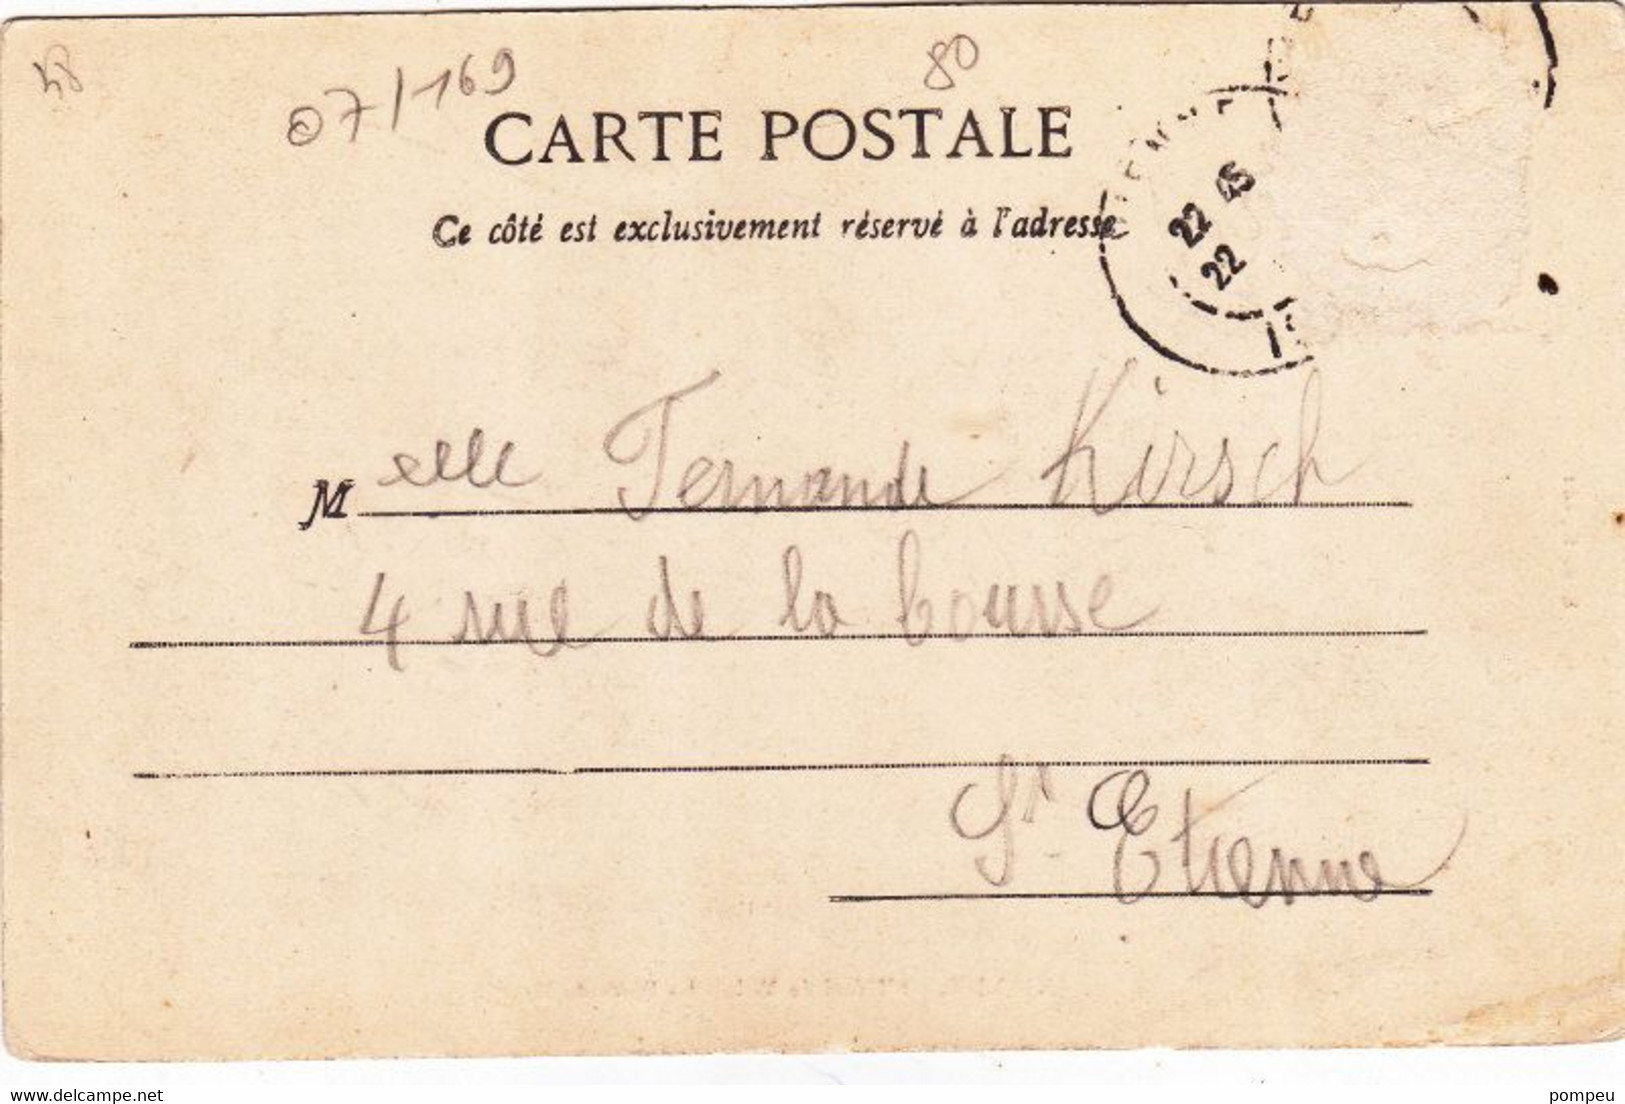 48
07/169
80
CARTE POSTALE
Ce côté est exclusivement réservé à l'adresse
22 45
22
M elle Fernande Kirsch
4 rue de la bourse
St. Etienne
www.delcampe.net
pompeu